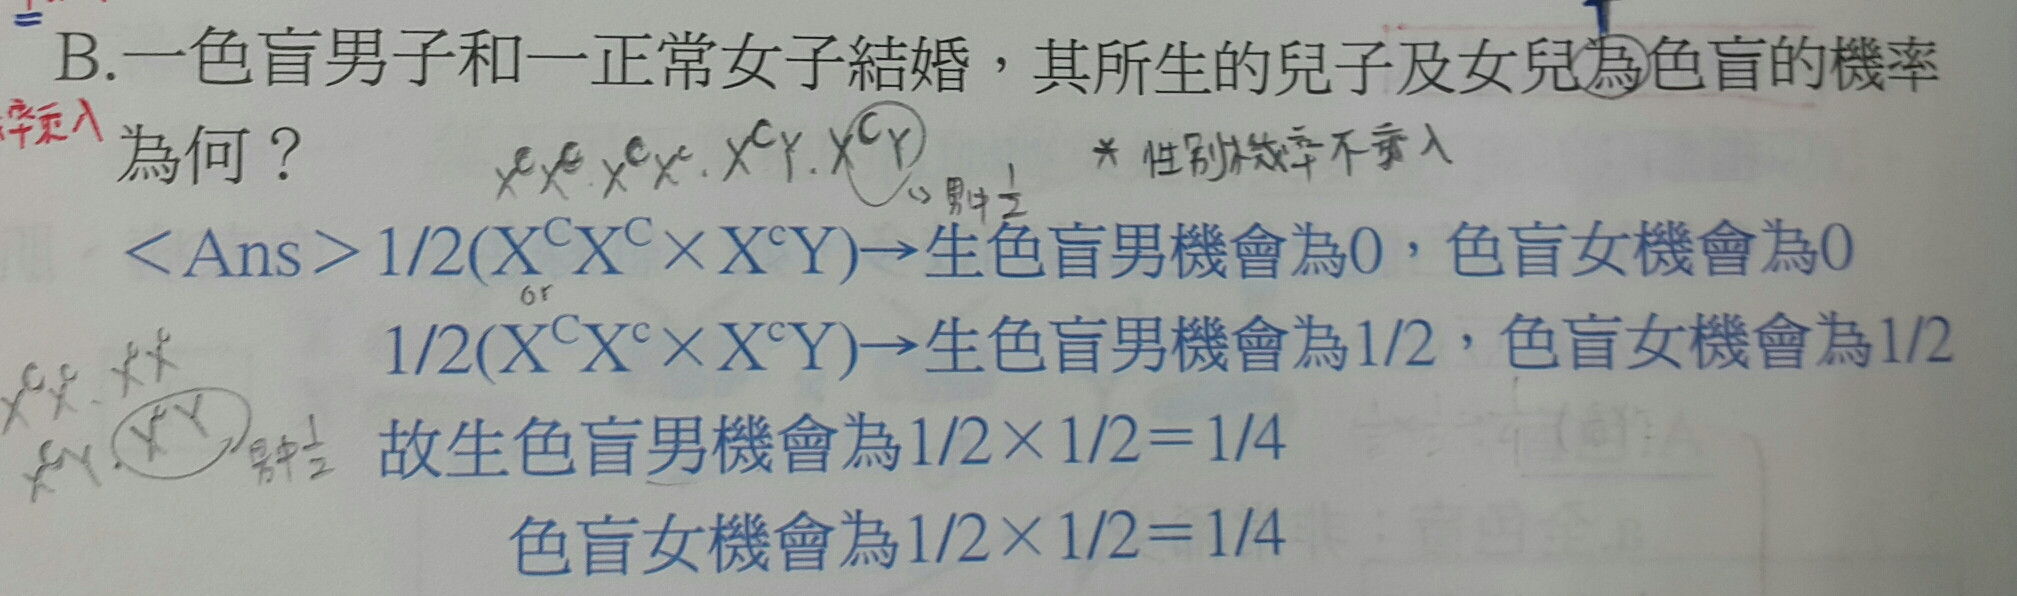 B.一色盲男子和一正常女子結婚，其所生的兒子及女兒為色盲的機率
率乘入 為何？
XᶜY.XᶜY * 性別機率不乘入
男中1/2
＜Ans＞1/2(XᶜXᶜ×XᶜY)→生色盲男機會為0，色盲女機會為0
or
1/2(XᶜXᶜ×XᶜY)→生色盲男機會為1/2，色盲女機會為1/2
男中1/2
故生色盲男機會為1/2×1/2＝1/4
色盲女機會為1/2×1/2＝1/4